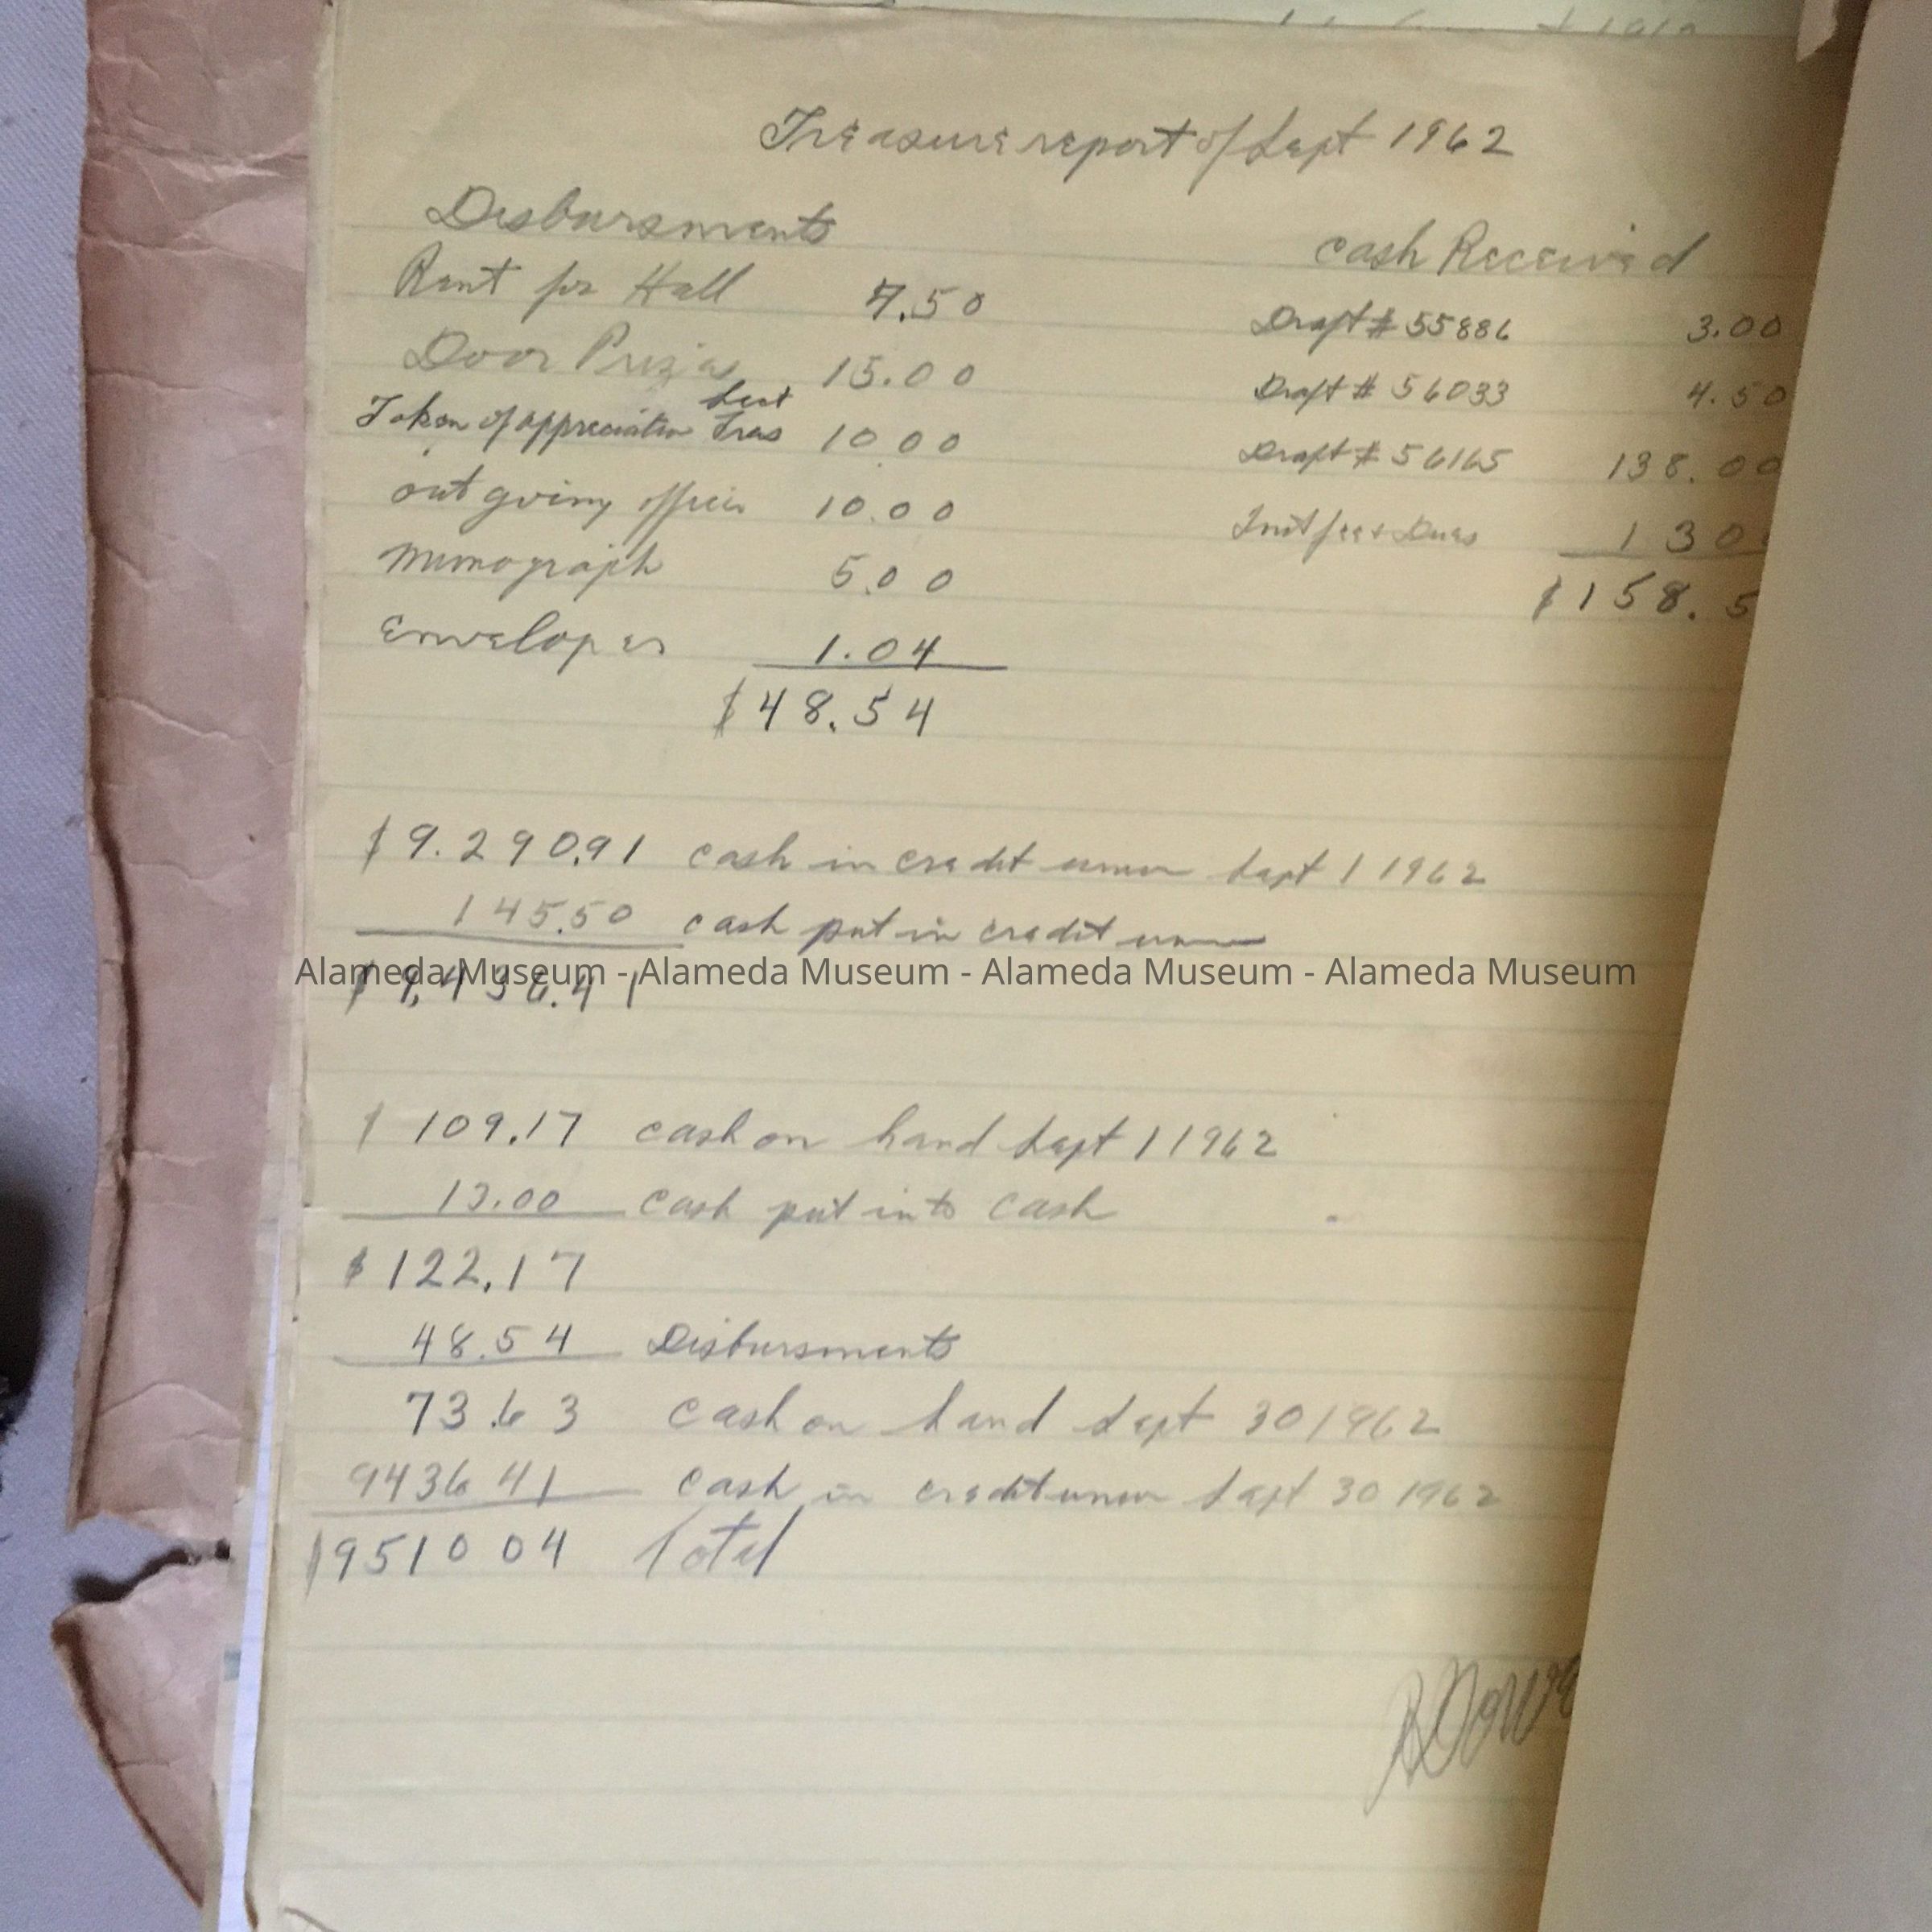 Treasure report of Sept 1962
Disbursments
Rent for Hall 7.50
Door Prizes 15.00
Sect
Token of appreciation Treas 10.00
out going officer 10.00
Mimograph 5.00
Envelopes 1.04
$48.54
Cash Received
Draft # 55886 3.00
Draft # 56033 4.50
Draft # 56165 138.00
Init fee & Dues 130
$158.5
$9.290.91 cash in credit union Sept 1 1962
145.50 cash put in credit union
$9,436.41
Alameda Museum - Alameda Museum - Alameda Museum - Alameda Museum
$109.17 cash on hand Sept 1 1962
13.00 cash put into cash
$122.17
48.54 Disbursments
73.63 cash on hand Sept 30 1962
9436 41 cash in credit union Sept 30 1962
$9510 04 Total